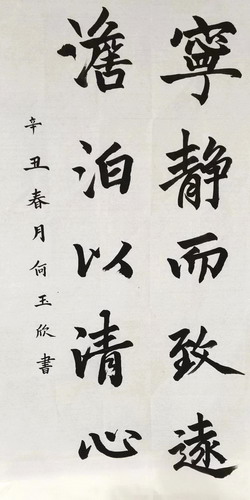 寧静而致遠
澹泊以清心
辛丑春月何玉欣書